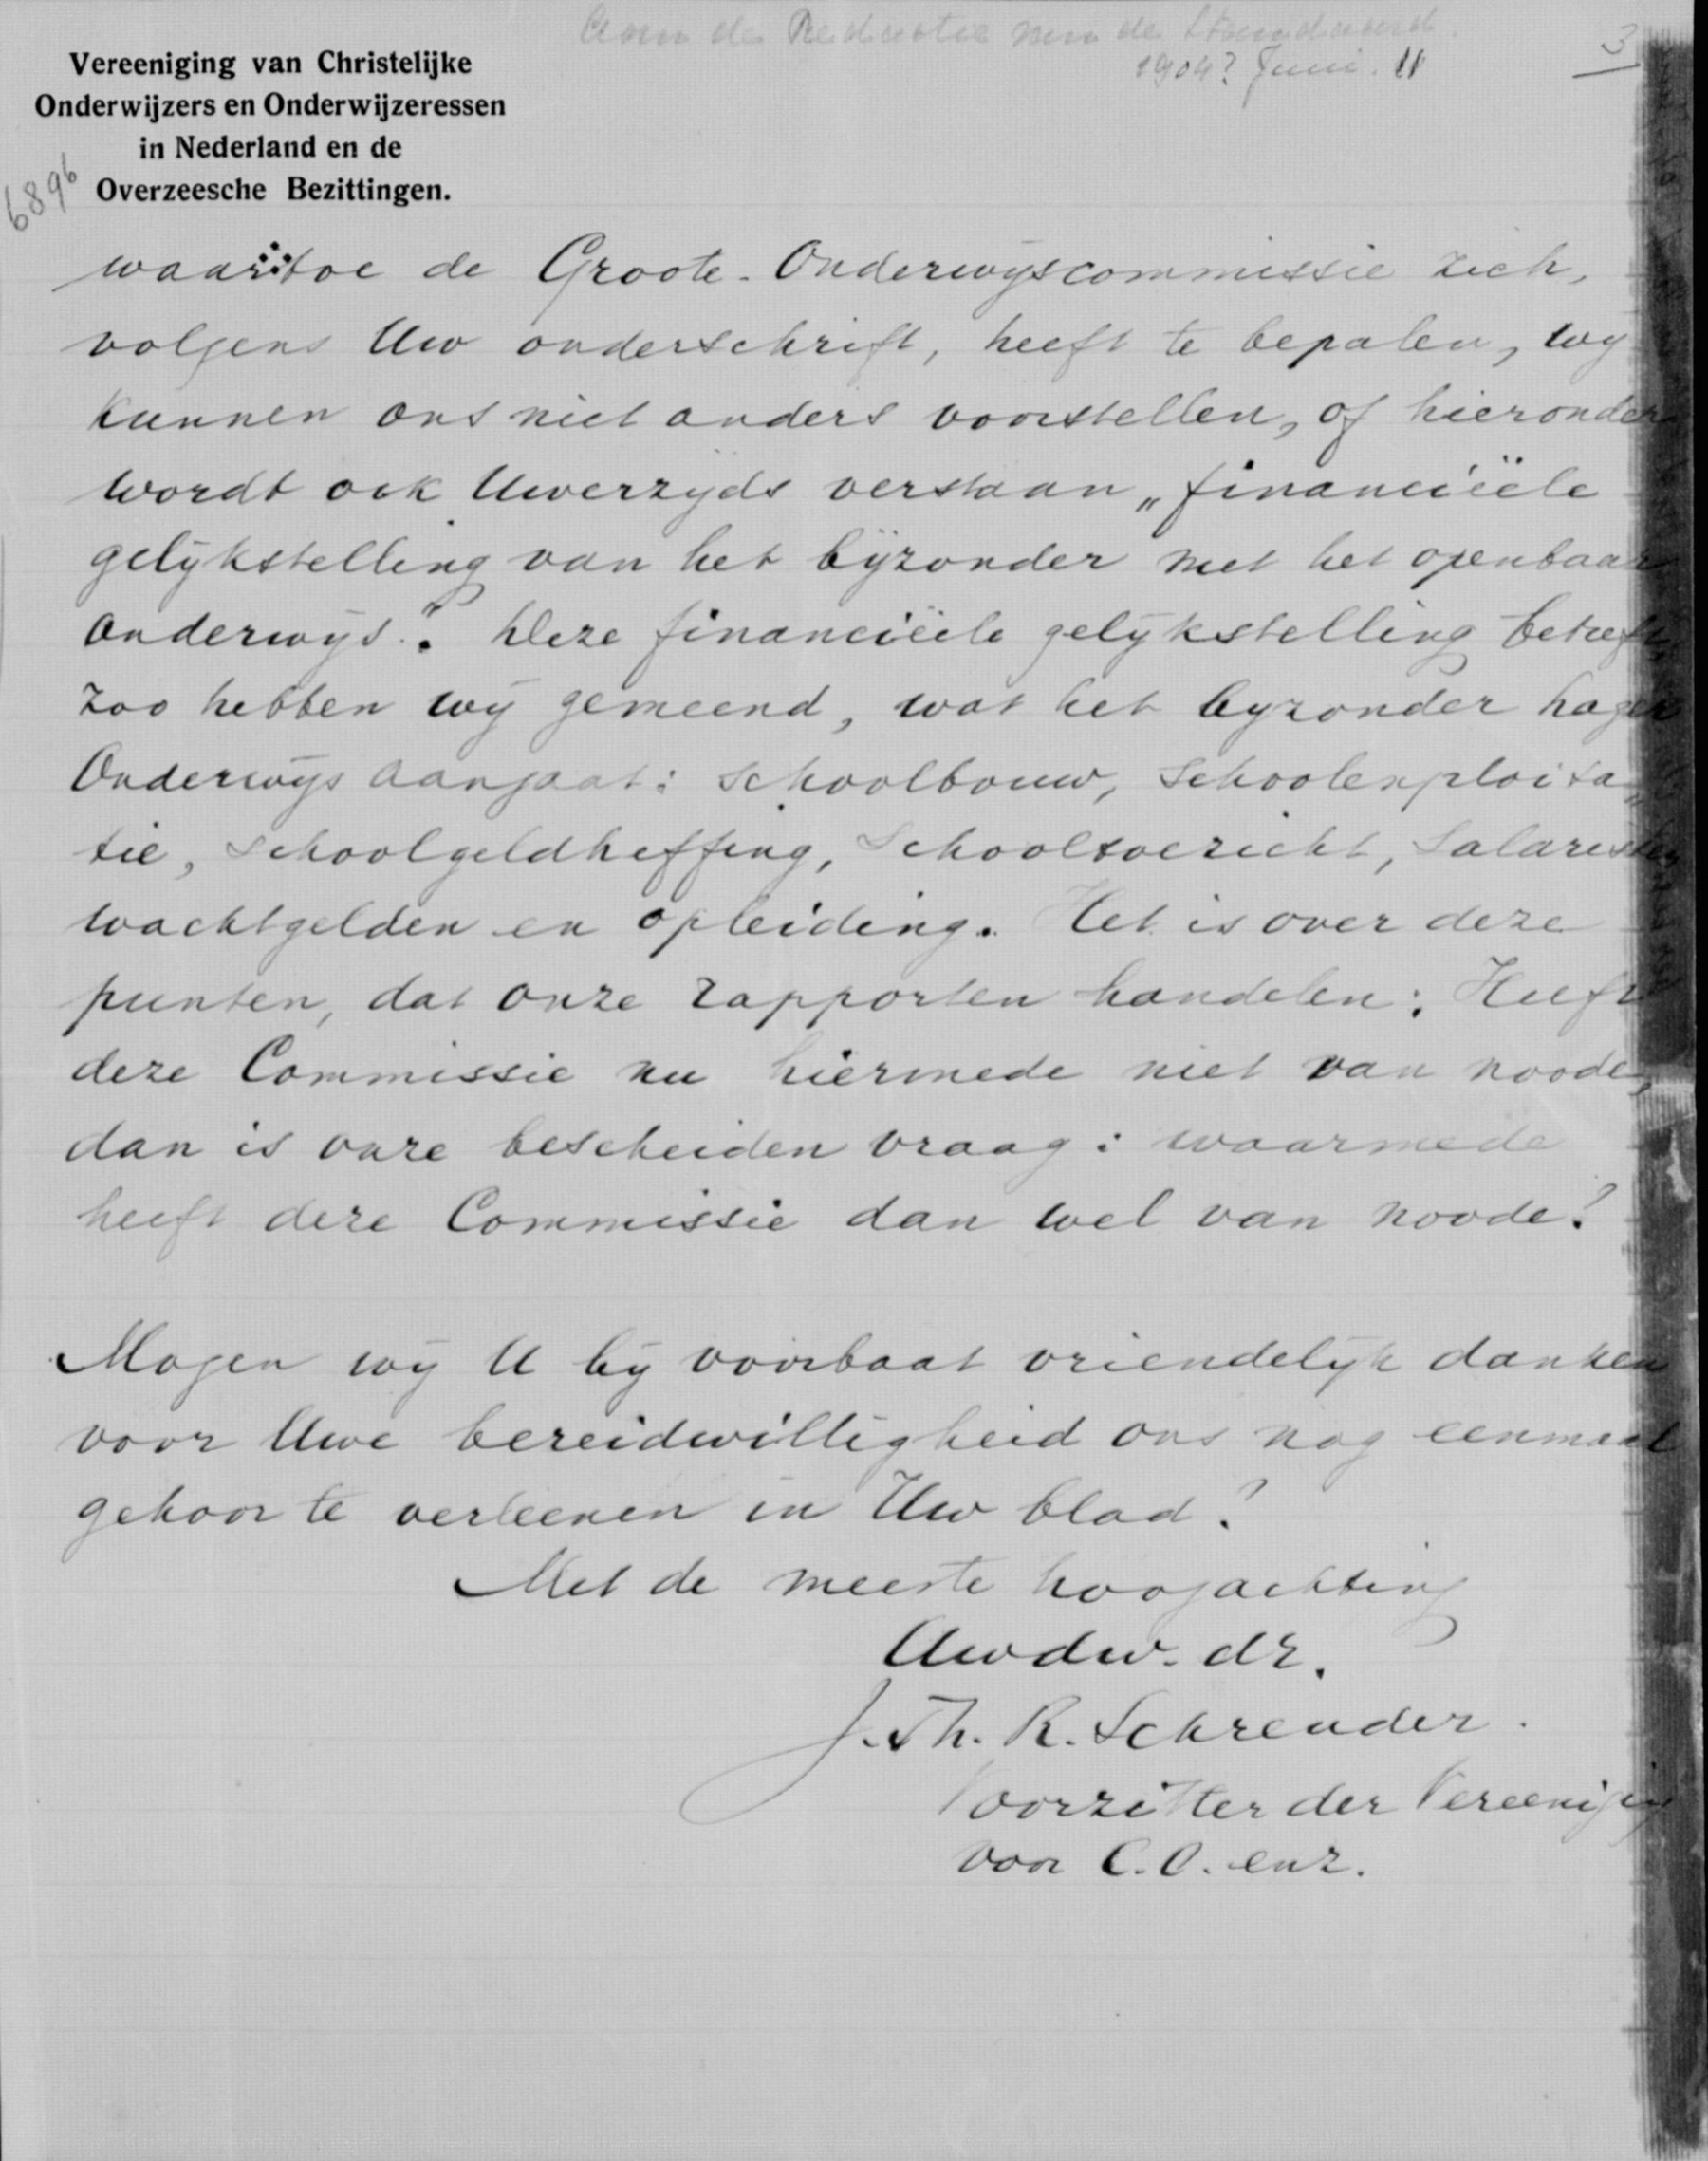 Aan de Redactie van de Standaard.
1904? Juni. 11
3
Vereeniging van Christelijke
Onderwijzers en Onderwijzeressen
in Nederland en de
Overzeesche Bezittingen.
6896
waartoe de Groote-Onderwijscommissie zich,
volgens Uw onderschrift, heeft te bepalen, wij
kunnen ons niet anders voorstellen, of hieronder
wordt ook Uwerzijds verstaan „financiëele
gelijkstelling van het bijzonder met het openbaar
onderwijs." Deze financiëele gelijkstelling betreft,
zoo hebben wij gemeend, wat het bijzonder lager
Onderwijs aangaat: schoolbouw, schoolexploita„
tie, schoolgeldheffing, schooltoezicht, salarissen
wachtgelden en opleiding. Het is over deze
punten, dat onze rapporten handelen: Heeft
deze Commissie nu hiermede niet van noode,
dan is onze bescheiden vraag: waarmede
heeft deze Commissie dan wel van noode?
Mogen wij U bij voorbaat vriendelijk danken
voor Uwe bereidwilligheid ons nog eenmaal
gehoor te verleenen in Uw blad?
Met de meeste hoogachting
Uwdw. dr.
J. Th. R. Schreuder.
Voorzitter der Vereeniging
van C.O. enz.